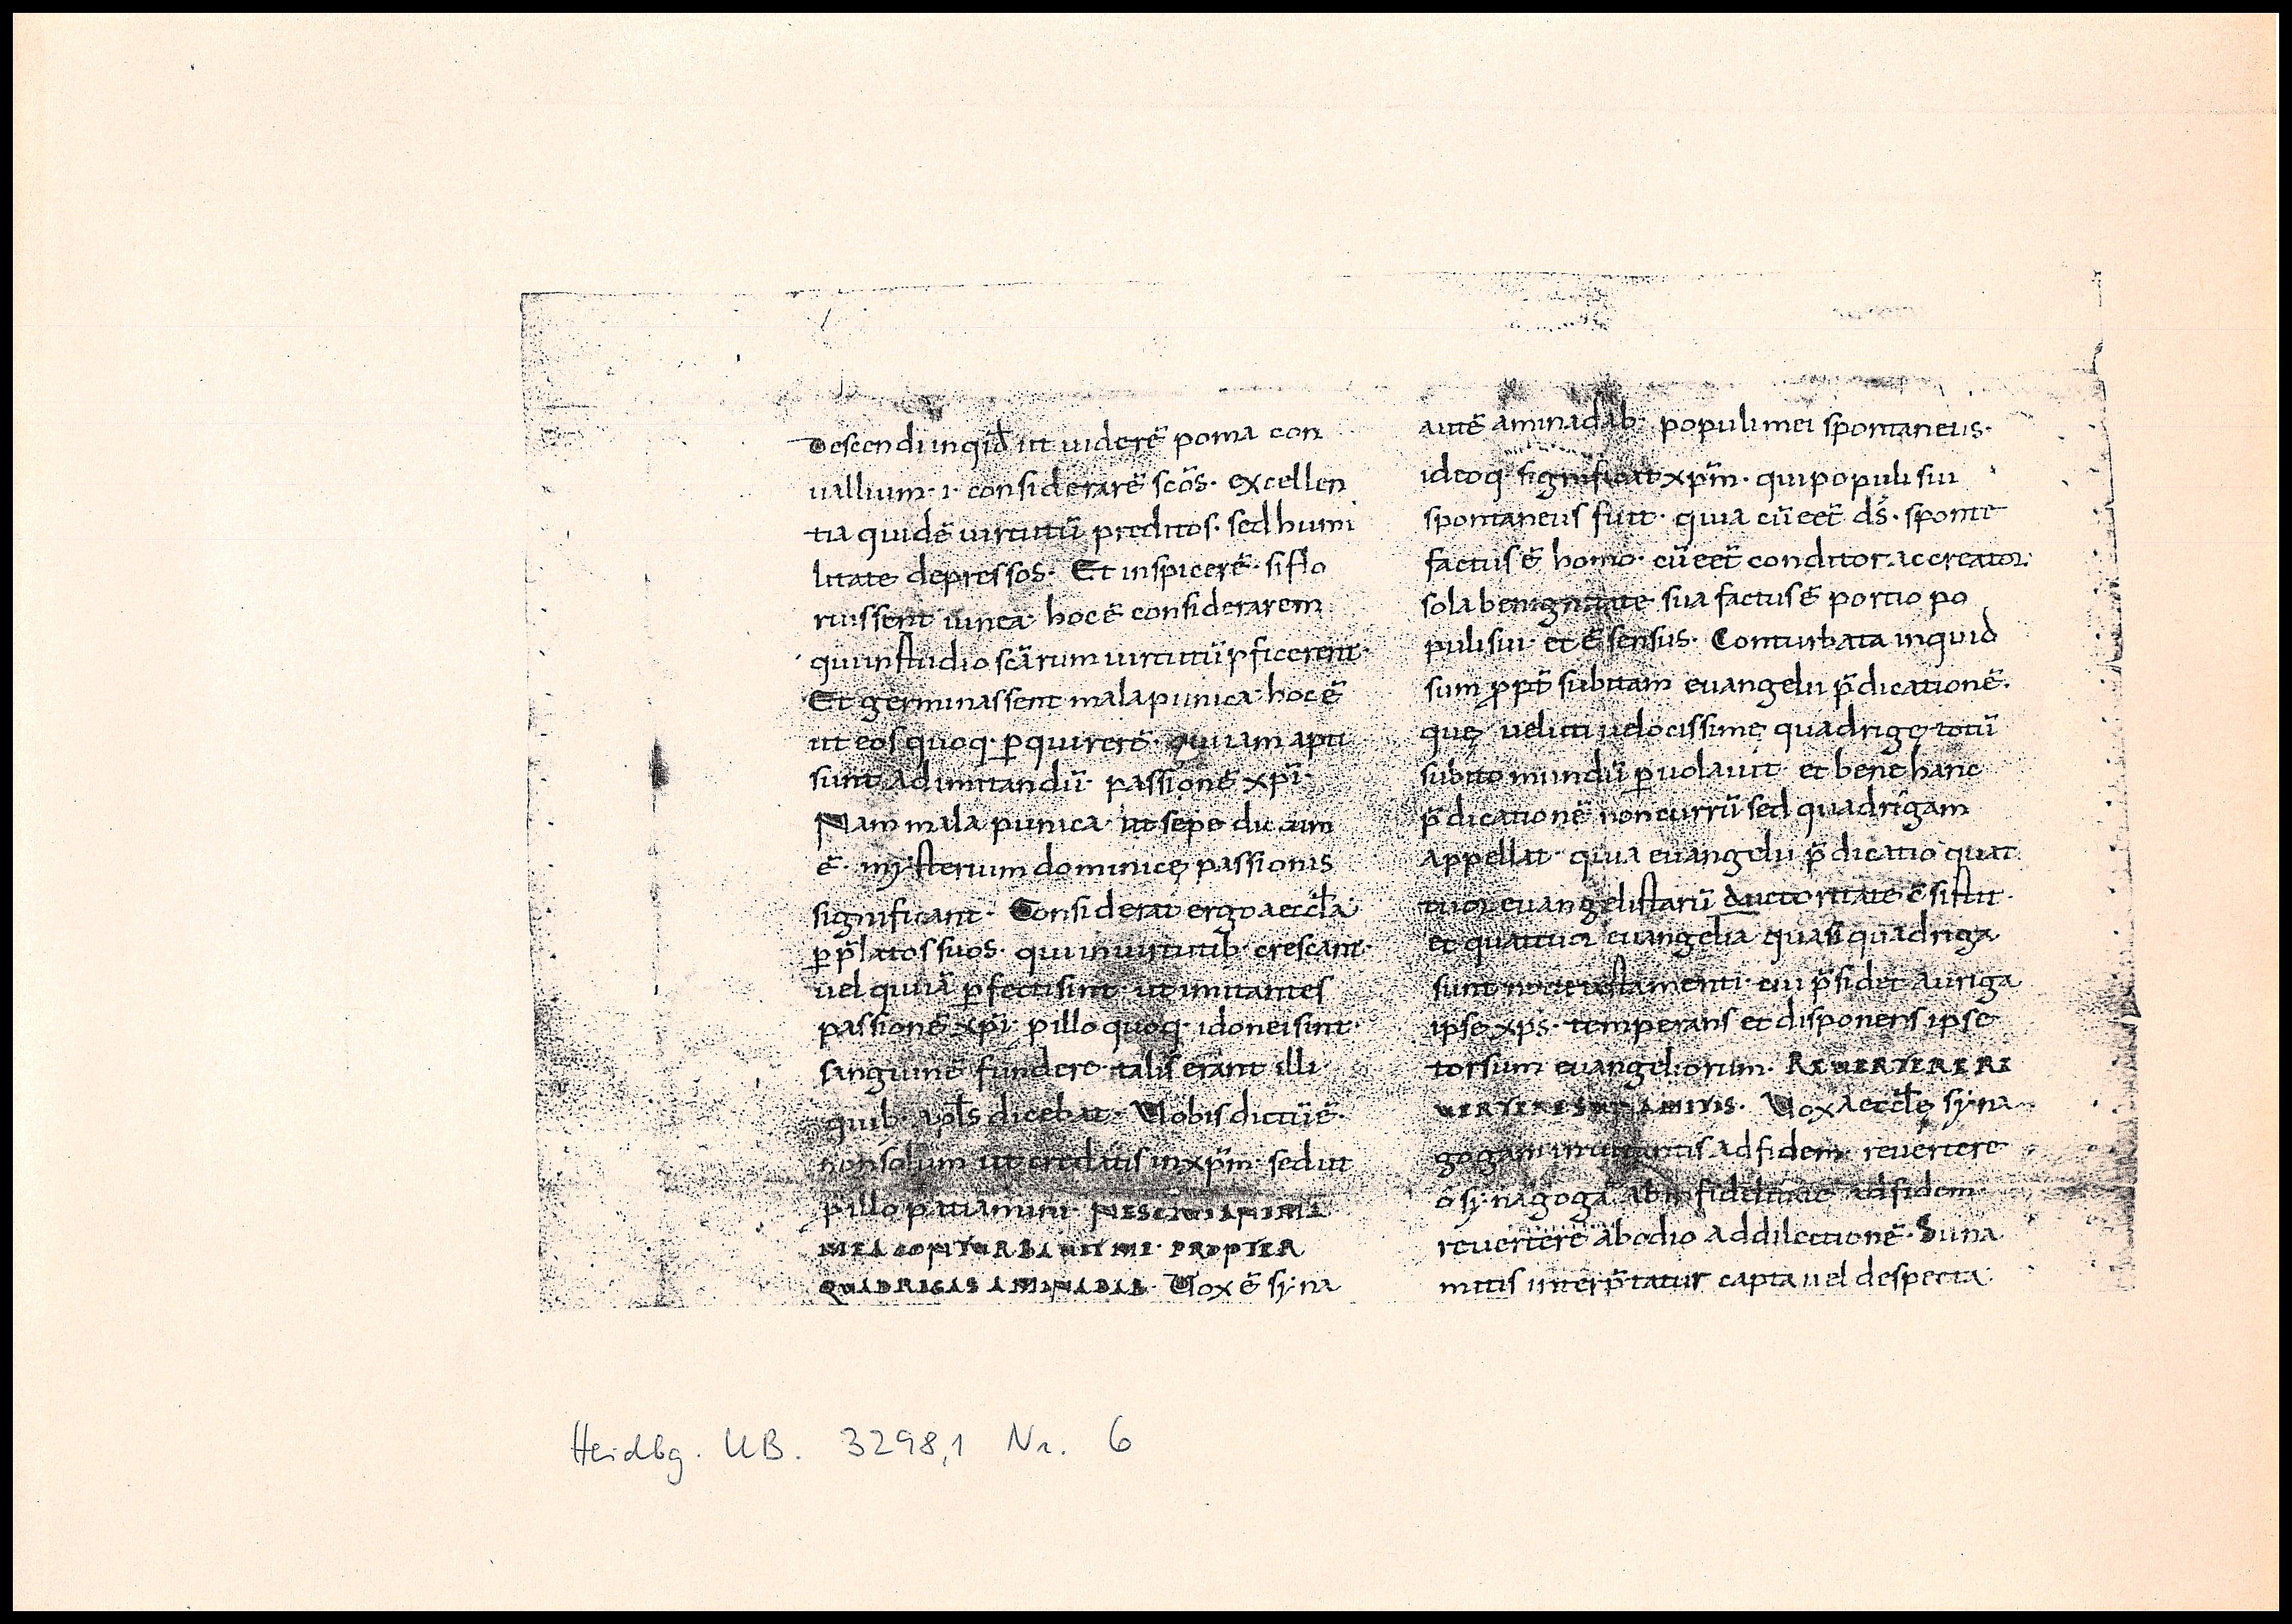 Descendi inqid ut viderē poma con
uallium · i · considerarē scōs · excellen
tia quidē uirtutū preditos · sed humi
litate depressos · Et inspicerē · si flo
ruissent uinea · hoc ē considerarem
qui in studio scārum uirtutū pficerent ·
Et germinassent mala punica · hoc ē
ut eos quoq · pquirerē · qui iam apti
sunt ad imitandū · passionē xpi ·
Nam mala punica · ut sepe dictum
ē · mysterium dominicę passionis
significant · Considerat ergo aeccla
p plātos suos · qui in uirtutib · crescant ·
uel qui iā pfecti sint · ut imitantes
passionē xpi · p illo quoq · idonei sint ·
sanguinē fundere · talis erant illi ·
quib · apls dicebat · Uobis dictū ē ·
non solum ut credatis in xpm · sed ut
p illo patiamini · NESCIUI ANIMA
MEA CONTURBAUIT ME · PROPTER
QUADRIGAS AMINADAB · Uox ē syna
autē aminadab · populi mei spontaneus ·
ideoq · significat xpm · qui populi sui
spontaneus fuit · quia cū eēt ds · sponte
factus ē homo · cū eēt conditor ac creator ·
sola benignitate sua factus ē portio po
puli sui · et ē sensus · Conturbata inquid
sum ppt subitam euangelii pdicationē ·
quę ueluti uelocissimę quadrigę totū
subito mundū puolauit · et bene hanc
pdicationē non currū sed quadrigam
appellat · quia euangelii pdicatio quat
tuor euangelistarū auctoritate cōsistit ·
et quattuor euangelia quasi quadriga
sunt noui testamenti · cui psidet auriga
ipse xps · temperans et disponens ipse
torsum euangeliorum · REUERTERE RE
UERTERE SUNAMITIS · Uox aecclę syna
gogam inuitantis ad fidem · reuertere
o synagoga ab infidelitate ad fidem
reuertere ab odio ad dilectionē · Suna
mitis interptatur capta uel despecta ·
Heidbg. UB. 3298,1 Nr. 6